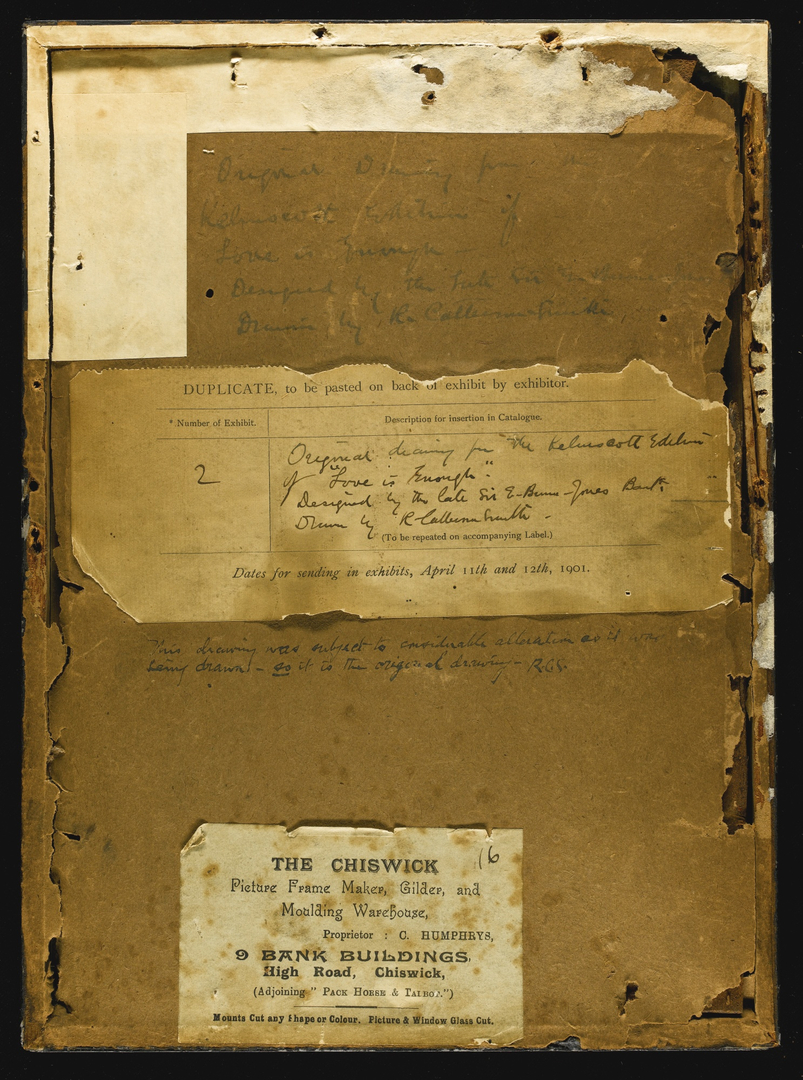 Original Drawing from the
Kelmscott Edition of
Love is Enough -
Designed by the late Sir
Drawn by R. Catterson Smith,
DUPLICATE, to be pasted on back of exhibit by exhibitor.
* Number of Exhibit.
Description for insertion in Catalogue.
2
Original drawing for "The Kelmscott Edition
of "Love is Enough".
Designed by the late Sir E-Burne-Jones Bart.
Drawn by R-Catterson Smith -
(To be repeated on accompanying Label.)
Dates for sending in exhibits, April 11th and 12th, 1901.
This drawing was subject to considerable alteration as it was
being drawn - so it is the original drawing - R.C.S.
16
THE CHISWICK
Picture Frame Maker, Gilder, and
Moulding Warehouse,
Proprietor : C. HUMPHRYS,
9 BANK BUILDINGS,
High Road, Chiswick,
(Adjoining "PACK HORSE & TALBOT.")
Mounts Cut any Shape or Colour. Picture & Window Glass Cut.